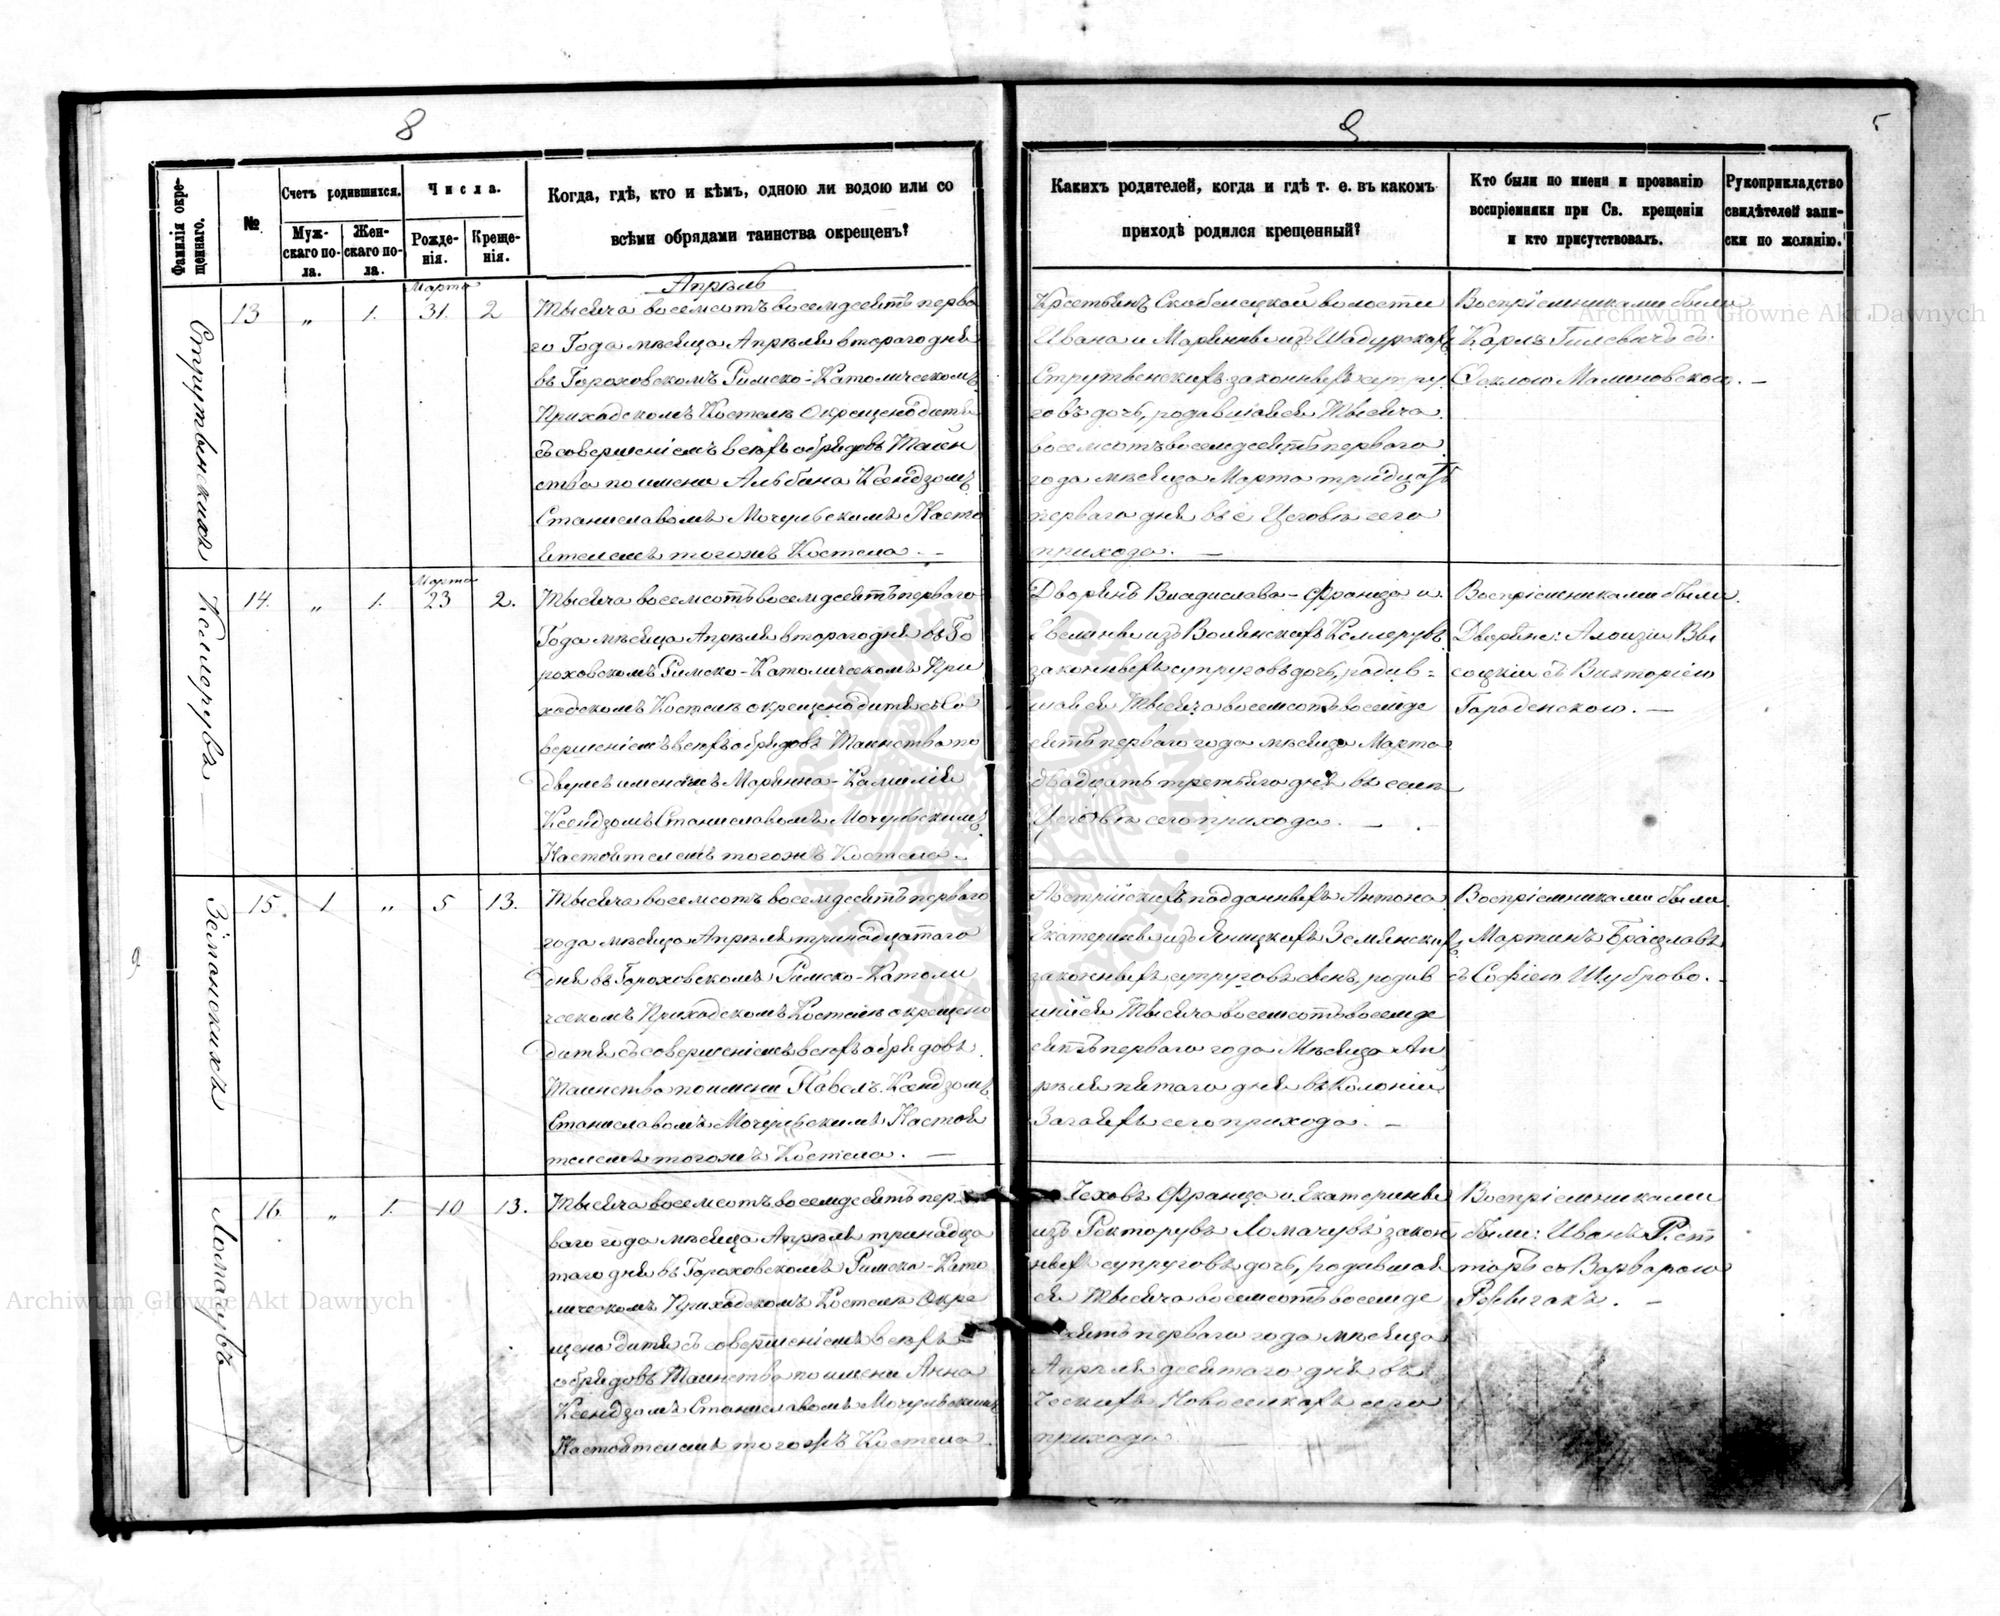 8
9
5
Фамилія окре-
щеннаго.
№
Счетъ родившихся.
Муж-
скаго по-
ла.
Жен-
скаго по-
ла.
Числа.
Рожде-
нія.
Креще-
нія.
Когда, гдѣ, кто и кѣмъ, одною ли водою или со
всѣми обрядами таинства окрещенъ?
Какихъ родителей, когда и гдѣ т. е. въ какомъ
приходѣ родился крещенный?
Кто были по имени и прозванію
воспріемники при Св. крещеніи
и кто присутствовалъ.
Рукоприкладство
свидѣтелей запи-
ски по желанію.
Апрѣль
Струтынскихъ
13
„
1.
Марта
31.
2
Тысяча восемсотъ восемдесятъ перва
го Года мѣсяца Апрѣля втораго дня
въ Гороховскомъ Римско-Католическомъ
Приходскомъ Костелѣ Окрещено дитя
съ совершеніемъ всѣхъ обрядовъ Таин
ства по имени Альбина Ксендзомъ
Станиславомъ Мочульскимъ Насто
ятелемъ тогожъ Костела. —
Крестьянъ Скобелецкой волости
Ивана и Маріянны изъ
законныхъ супру
говъ дочь, родившаяся Тысяча
восемсотъ восемдесятъ перваго
года мѣсяца Марта тридцать
перваго дня въ с Цеговѣ сего
прихода. —
Воспріемниками были
Карлъ Гилевичъ съ
Феклою Малиновскою. —
14.
„
1.
Марта
23
2.
Тысяча восемсотъ восемдесятъ перваго
Года мѣсяца Апрѣля втораго дня въ Го
роховскомъ Римско-Католическомъ При
ходскомъ Костелѣ окрещено дитя съ Со
вершеніемъ всѣхъ обрядовъ Таинства по
двумъ именамъ Маріянна-Камилія
Ксендзомъ Станиславомъ Мочульскимъ
Настоятелемъ тогожъ Костела.
Дворянъ Владислава-Франца и
изъ Волянскихъ
законныхъ супруговъ дочь, родив=
шаяся Тысяча восемсотъ восемде
сятъ перваго года мѣсяца Марта
двадцать третьяго дня въ селѣ
Цеговѣ сего прихода. —
Воспріемниками были
Дворяне: Алоизій Вы
соцкій съ Викторіею
Городенскою. —
Зѣмянскихъ
15.
1
„
5
13.
Тысяча восемсотъ восемдесятъ перваго
года мѣсяца Апрѣля тринадцатаго
дня въ Гороховскомъ Римско-Католи
ческомъ Приходскомъ Костелѣ окрещено
дитя съ совершеніемъ всѣхъ обрядовъ
Таинства по имени Павелъ. Ксендзомъ
Станиславомъ Мочульскимъ Настоя
телемъ тогожъ Костела. —
Австрійскихъ подданныхъ Антона
Екатерины изъ Яницкихъ Земянскихъ
законныхъ супруговъ сынъ, родив
шійся Тысяча восемсотъ восемде
сятъ перваго года Мѣсяца Ап
рѣля пятаго дня въ Колоніи
Загаяхъ сего прихода. —
Воспріемниками были
Мартинъ Браславъ
съ Софіею Шуброво. -
Ломачувъ
16.
„
1.
10
13.
Тысяча восемсотъ восемдесятъ пер
ваго года мѣсяца Апрѣля тринадца
таго дня въ Гороховскомъ Римско-Като
лическомъ Приходскомъ Костелѣ Окре
щено дитя съ совершеніемъ всѣхъ
обрядовъ Таинства по имени Анна
Ксендзомъ Станиславомъ Мочульскимъ
Настоятелемъ тогожъ Костела.
Чеховъ Франца и Екатерины
изъ Ректорувъ Ломачувъ закон
ныхъ супруговъ дочь, родившая
ся Тысяча восемсотъ восемде
сятъ перваго года мѣсяца
Апрѣля десятаго дня въ
Ческихъ Новоселкахъ сего
прихода.
Воспріемниками
были: Иванъ
съ Варварою
Archiwum Główne Akt Dawnych
Archiwum Główne Akt Dawnych